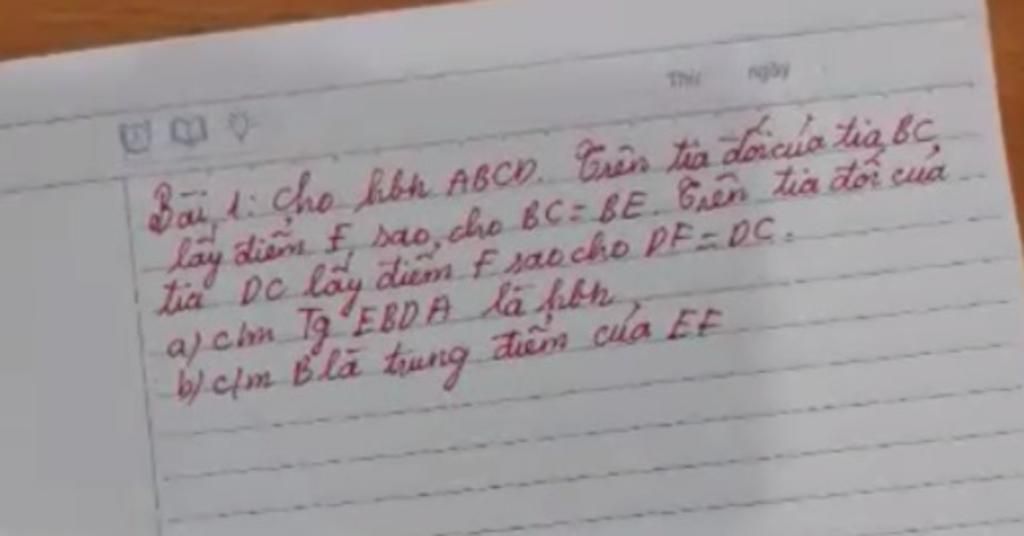 Thứ ngày
Bài 1: Cho hbh ABCD. Trên tia đối của tia BC
lấy điểm E sao cho BC = BE. Trên tia đối của
tia DC lấy điểm F sao cho DF = DC.
a) c/m Tg EBDA là hbh
b) c/m B là trung điểm của EF